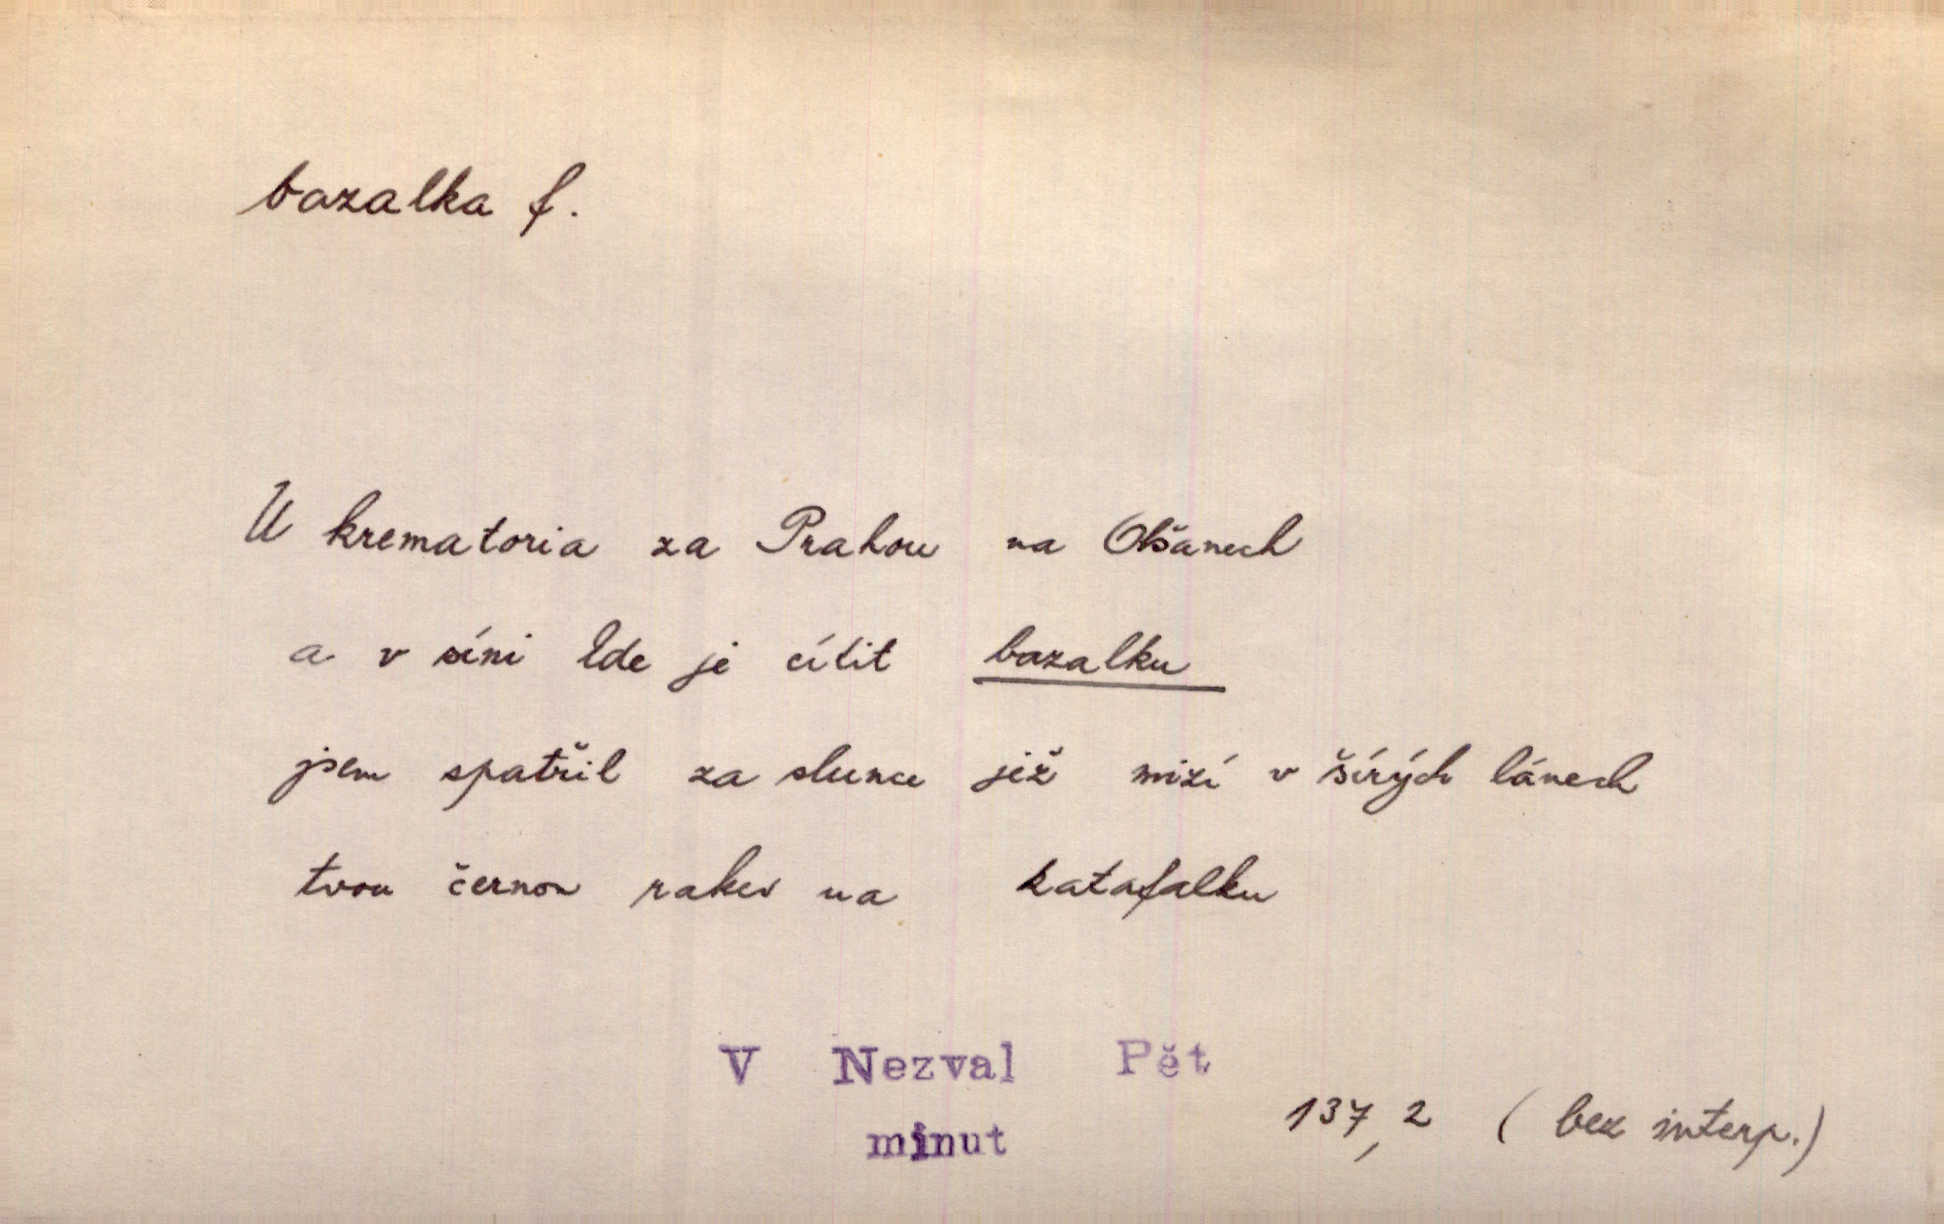 bazalka f.
U krematoria za Prahou na Olšanech
a v síni kde je cítit bazalku
jsem spatřil za slunce již mizí v šírých lánech
tvou černou rakev na katafalku
V Nezval Pět
minut
137,2 (bez interp.)